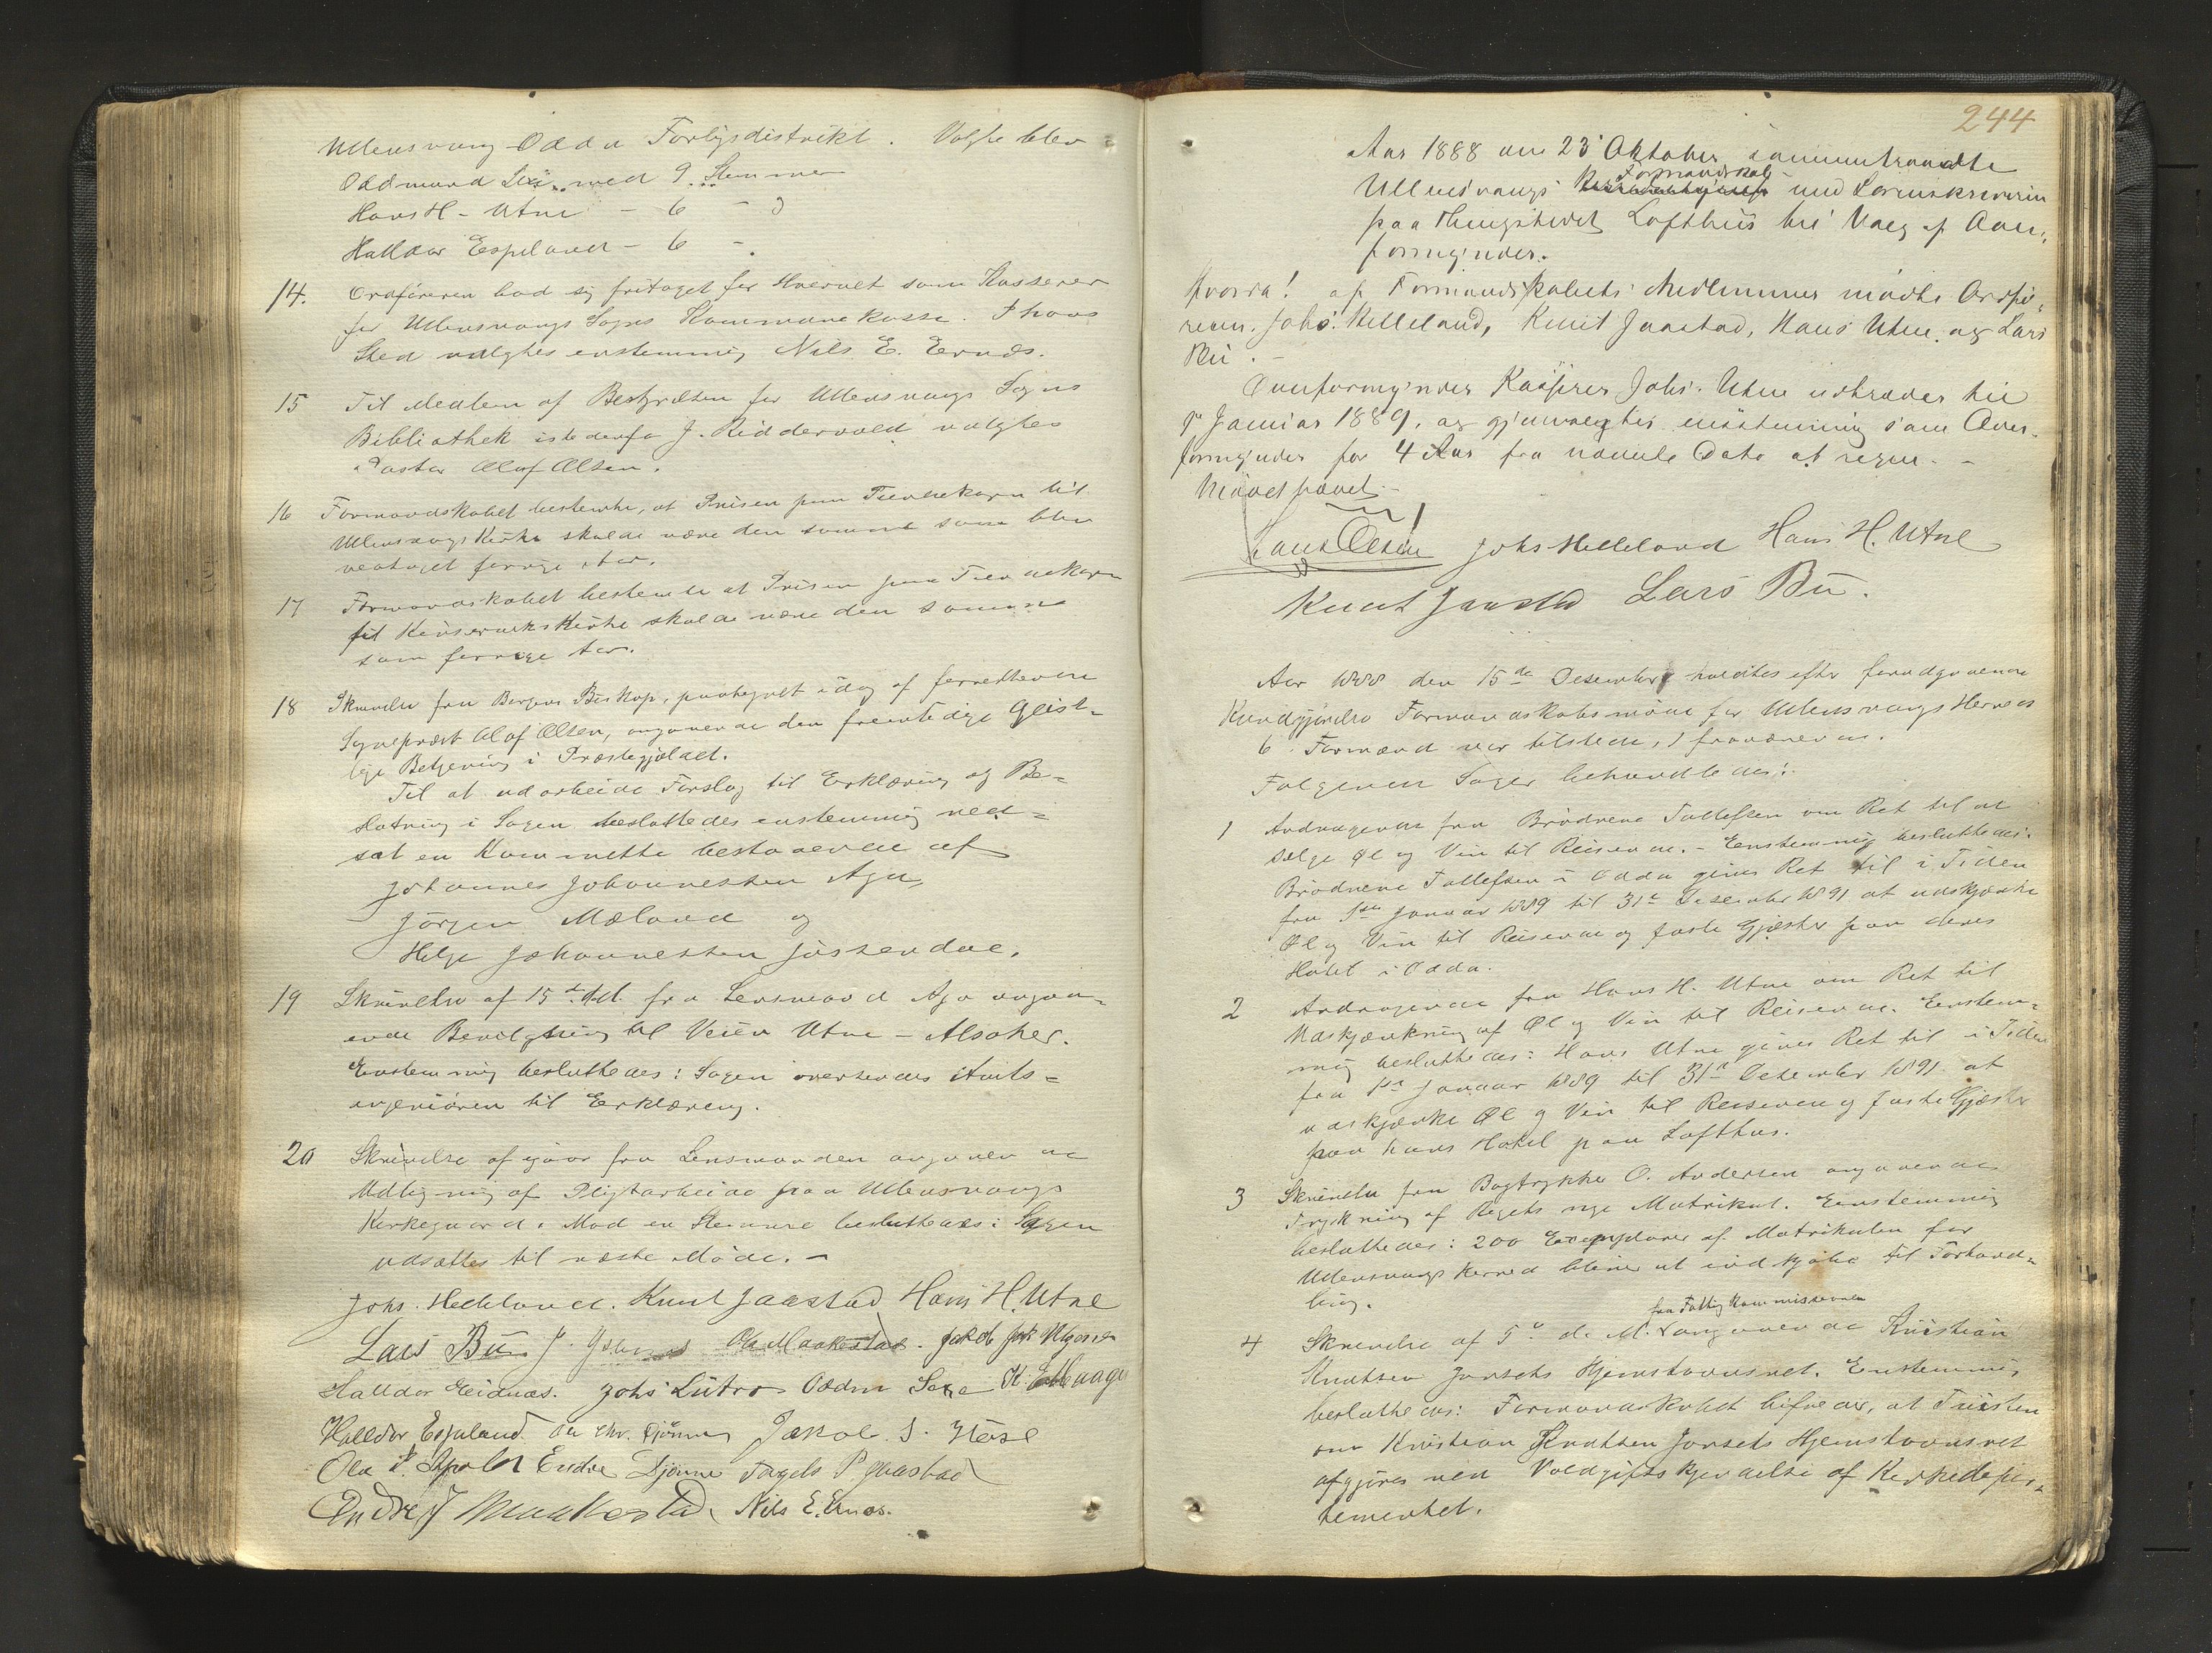 Ullensvang-Odda Forligsdistrikt. Valgte blev
Oddmund Sexe med 9 Stemmer
Hans H. Utne - 6 - "
Halldor Espeland - 6 - .
14. Ordføreren bad sig fritaget for Hvervet som Kasserer
for Ullensvangs Sogns Kommunekasse. I hans
Sted valgtes enstemmig Nils E. Ernæs.
15 Til Medlem af Bestyrelsen for Ullensvangs Sogns
Bibliothek istedenfor J. Riddervold valgtes
Pastor Olaf Olsen.
16 Formandskabet bestemte, at Prisen paa Tiendekorn til
Ullensvangs Kirke skulde være den samme som blev
vedtaget forrige Aar.
17 Formandskabet bestemte at Prisen paa Tiendekorn
til Kinserviks Kirke skulde være den samme
som forrige Aar.
18 Skrivelse fra Bergens Biskop, paategnet idag af
Sogneprest Olaf Olsen, angaaende den fremtidige Geist-
lige Betjening i Præstegjeldet.
Til at udarbeide Forslag til Erklæring og Be-
slutning i Sagen besluttedes enstemmig ned-
sat en Kommitte bestaaende af
Johannes Johannessen Aga,
Jørgen Mæland og
Helge Johannessen Jøsendal.
19 Skrivelse af 15de ds. fra Lensmand Aga angaa-
ende Bevilgning til Veien Utne - Alsaker.
Enstemmig besluttedes: Sagen oversendes Amts-
ingeniøren til Erklæring.
20 Skrivelse af igaar fra Lensmanden angaaende
Udligning af Pligtarbeide paa Ullensvangs
Kirkegaard. Mod en Stemme besluttedes: Sagen
udsættes til næste Møde. -
Johs. Helleland. Knut Jaastad Hans H. Utne
Lars Bu J. Ola Maakestad. Jakob
Halldor Eidnæs. Johs Lutro Oddm Sexe K.
Halldor Espeland. Ola Chr. Djønne Jakob S.
Ola Endre Djønne Torgels P. Jaastad
Endre J Maakestad Nils E. Ernæs.
244
Aar 1888 den 23 Oktober sammentraadte
Formandskab
Ullensvangs med Sorenskriveren
paa Thingstedet Lofthus til Valg af Over-
formynder.
Hvorda! af Formandskabets Medlemmer mødte Ordfø-
reren Johs. Helleland, Knut Jaastad, Hans Utne og Lars
Bu. -
Overformynder Kasserer Johs. Utne udtræder til
1 Januar 1889, og gjenvalgtes enstemmig som Over-
formynder for 4 Aar fra nævnte Dato at regne. -
Mødet hævet. -
Johs Helleland Hans H. Utne
Knut Jaastad Lars Bu.
Aar 1888 den 15de Desember holdtes efter forudgaaende
Kundgjørelse Formandskabsmøde for Ullensvangs Herred
6 Formænd var tilstede, 1 fraværende.
Følgende Sager behandledes:
1 Andragende fra Brødrene Tollefsen om Ret til at
sælge Øl og Vin til Reisende. - Enstemmig besluttedes:
Brødrene Tollefsen i Odda gives Ret til i Tiden
fra 1ste Januar 1889 til 31te Desember 1891 at udskjænke
Øl og Vin til Reisende og faste Gjæster paa deres
Hotel i Odda.
2 Andragende fra Hans H. Utne om Ret til
Udskjænkning af Øl og Vin til Reisende. Enstem-
mig besluttedes: Hans Utne gives Ret til i Tiden
fra 1ste Januar 1889 til 31te Desember 1891 at
udskjænke Øl og Vin til Reisende og faste Gjæster
paa hans Hotel paa Lofthus.
3 Skrivelse fra Bogtrykker O. Andersen angaaende
Trykning af Rigets nye Matrikul. Enstemmig
besluttedes: 200 Exemplarer af Matrikulen for
Ullensvangs Herred bliver at indkjøbe til Forhand-
ling.
fra Fattigkommissionen
4 Skrivelse af 5te d. M. angaaende Kristian
Knutsen Jorsets Hjemstavnsret. Enstemmig
besluttedes: Formandskabet bifalder, at Tvisten
om Kristian Knutsen Jorsets Hjemstavnsret
afgjøres ved Voldgiftskjendelse af Kirkedepar-
tementet.